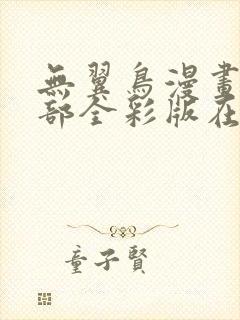 無翼鳥漫畫
部全彩版在
童子賢